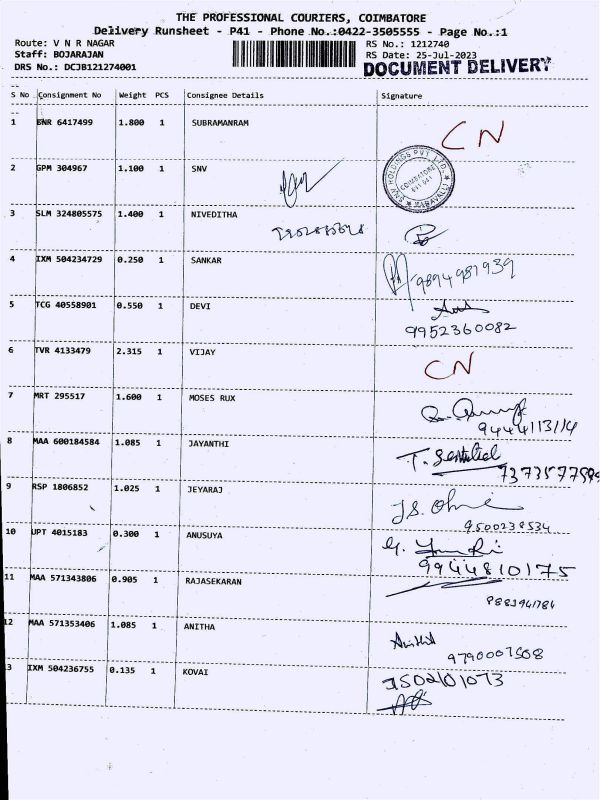 THE PROFESSIONAL COURIERS, COIMBATORE
Delivery Runsheet - P41 - Phone No.:0422-3505555 - Page No.:1
Route: V N R NAGAR RS No.: 1212740
Staff: BOJARAJAN RS Date: 25-Jul-2023
DRS No.: DCJB121274001 DOCUMENT DELIVERY
S No Consignment No Weight PCS Consignee Details Signature
1 BNR 6417499 1.800 1 SUBRAMANRAM CN
2 GPM 304967 1.100 1 SNV
HOLDINGS PVT LTD. COIMBATORE
3 SLM 324805575 1.400 1 NIVEDITHA
4 IXM 504234729 0.250 1 SANKAR 9894981939
5 TCG 40558901 0.550 1 DEVI
9952360082
6 TVR 4133479 2.315 1 VIJAY CN
7 MRT 295517 1.600 1 MOSES RUX
8 MAA 600184584 1.085 1 JAYANTHI
9 RSP 1806852 1.025 1 JEYARAJ
9500238534
10 UPT 4015183 0.300 1 ANUSUYA
9944810175
11 MAA 571343806 0.905 1 RAJASEKARAN
12 MAA 571353406 1.085 1 ANITHA
3 IXM 504236755 0.135 1 KOVAI 7502101073